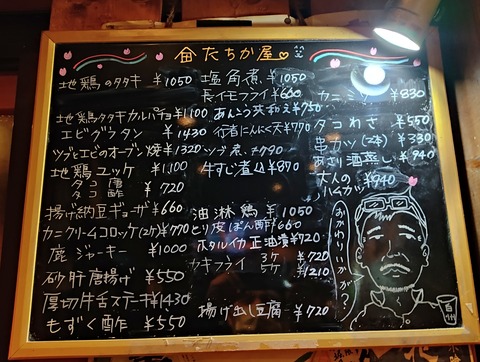 たちか屋
地鶏のタタキ ¥1050
地鶏タタキカルパッチョ ¥1100
エビグラタン ¥1430
ツブとエビのオーブン焼 ¥1320
地鶏ユッケ ¥1,100
タコ唐
タコ酢 ¥720
揚げ納豆ギョーザ ¥660
カニクリームコロッケ(2ケ) ¥770
鹿ジャーキー ¥1000
砂肝唐揚げ ¥550
厚切牛舌ステーキ ¥1430
もずく酢 ¥550
塩角煮 ¥1050
長イモフライ ¥660
あんこう共和え ¥750
行者にんにく天 ¥770
ツブ煮
牛すじ煮込 ¥870
油淋鶏 ¥1050
とり皮ぽん酢 ¥660
ホタルイカ正油漬 ¥720
カキフライ 3ケ ¥720
5ケ ¥1210
揚げ出し豆腐 ¥720
¥830
タコわさ ¥550
串カツ(2本) ¥330
あさり酒蒸し ¥940
大人の
ハムカツ ¥940
おかわりいかが?